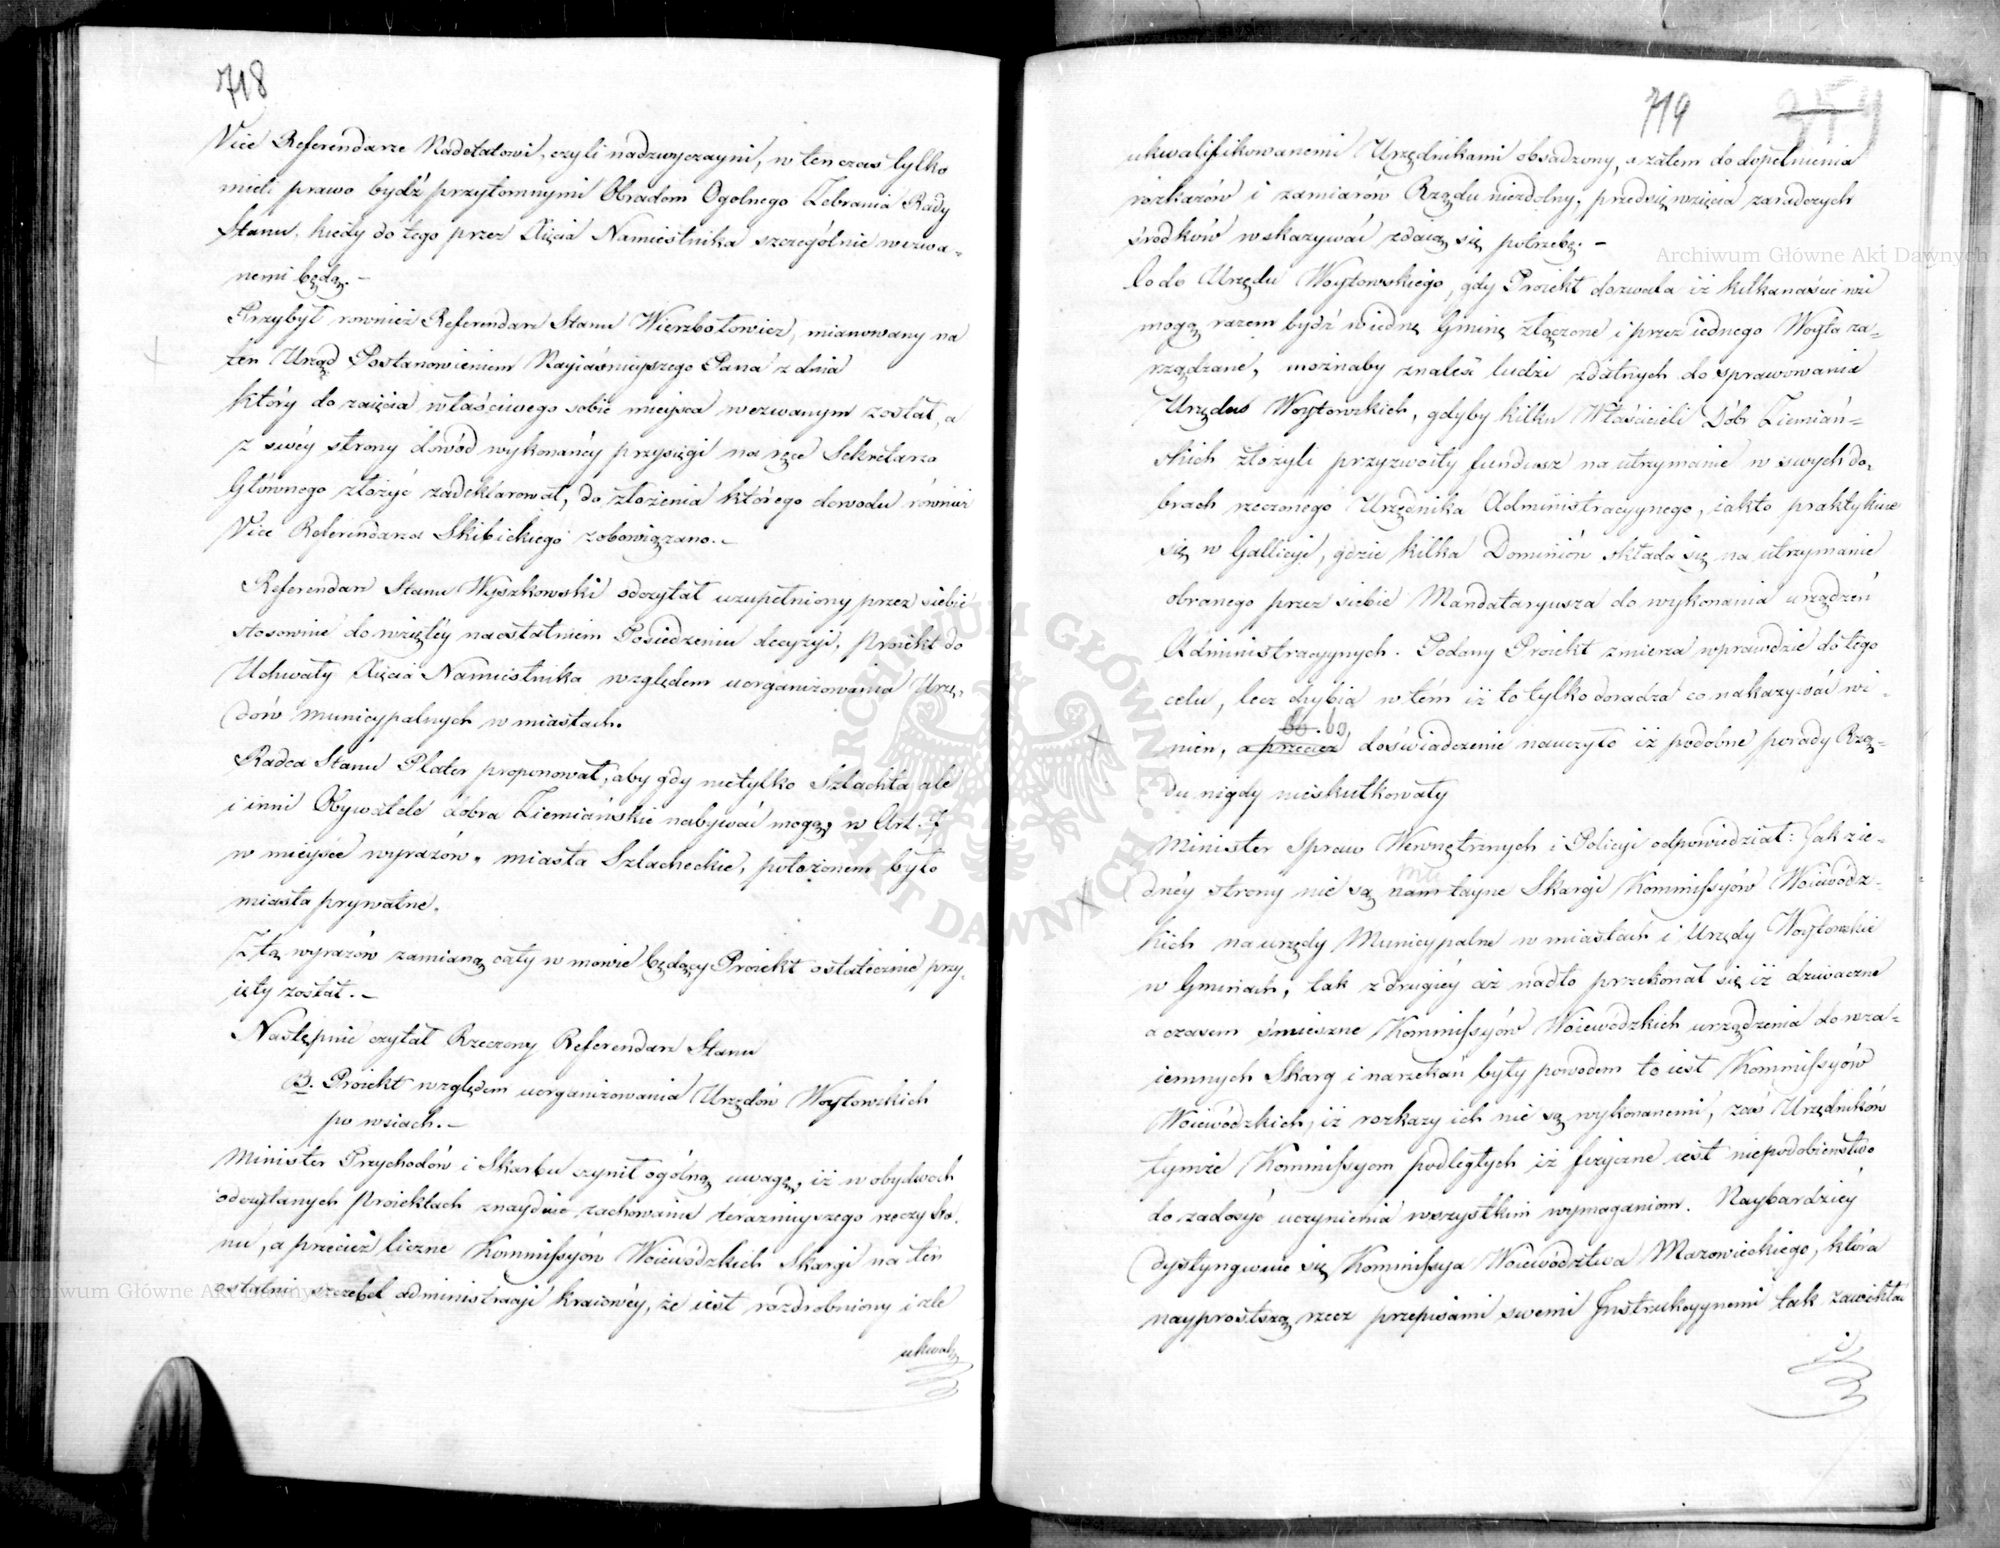 718
Vice Referendarze Nadetatowi, czyli nadzwyczayni, w ten czas tylko
mieli prawo bydź przytomnymi Obradom Ogolnego Zebrania Rady
Stanu, kiedy do tego przez Xięcia Namiestnika szczególnie wezwa-
nemi będą. –
Przybył rownież Referendarz Stanu Wierzbołowicz, mianowany na
ten Urząd Postanowieniem Nayiaśnieyszego Pana z dnia
który do zaięcia właściwego sobie mieysca wezwanym został, a
z swéy strony dowód wykonanéy przysięgi na ręce Sekretarza
Głównego złożyć zadeklarował, do złożenia którego dowodu również
Vice Referendarza Skibickiego zobowiązano. –
Referendarz Stanu Wyszkowski odczytał uzupełniony przez siebie
stosownie do wziętéy na ostatniem Posiedzeniu decyzyi, Proiekt do
Uchwały Xięcia Namiestnika względem uorganizowania Urzę-
dów Municypalnych w miastach.
Radca Stanu Plater proponował, aby gdy nietylko Szlachta ale
i inni Obywatele dobra Ziemiańskie nabywać mogą, w Art. 7
w mieysce wyrazów „ miasta Szlacheckie, położonem było
miasta prywatne.
Z tą wyrazów zamianą cały w mowie będący Proiekt ostatecznie przy-
ięty został. –
Następnie czytał Rzeczony Referendarz Stanu
B. Proiekt względem uorganizowania Urzędów Woytowskich
po wsiach. –
Minister Przychodów i Skarbu czynił ogólną uwagę, iż w obydwoch
odczytanych Proiektach znayduie zachowanie teraznieyszego rzeczy sta-
nu, a przecież liczne Kommissyów Woiewódzkich Skargi na ten
ostatni szczebel administracyi kraiowéy, że iest rozdrobniony i źle
ukwali
719
ukwalifikowanemi Urzędnikami obsadzony, a zatem do dopełnienia
rozkazów i zamiarów Rządu niezdolny, przedsięwzięcia zaradczych
środków wskazywać zdaią się potrzebę. –
Co do Urzędu Woytowskiego, gdy Proiekt dozwala iż kilkanaście wsi
mogą razem bydź w iednę Gminę złączone i przez iednego Woyta za-
rządzane, możnaby znaleść ludzi zdatnych do sprawowania
Urzędów Woytowskich, gdyby kilku Właścicieli Dóbr Ziemiań-
skich złożyli przyzwoity fundusz na utrzymanie w swych do-
brach rzeczonego Urzędnika Administracyynego, iak to praktykuie
się w Gallicyi, gdzie kilka Dominiów składa się na utrzymanie
obranego przez siebie Mandataryusza do wykonania urządzeń
Administracyynych. Podany Proiekt zmierza wprawdzie do tego
celu, lecz chybia w tém iż to tylko doradza co nakazywać wi-
bo. bo
nien, a przecież doświadczenie nauczyło iż podobne porady Rzą-
du nigdy nieskutkowały
Minister Spraw Wewnętrznych i Policyi odpowiedział: Jak z ie-
mu
dnéy strony nie są nam tayne Skargi Kommissyów Woiewódz-
kich na urzędy Municypalne w miastach i Urzędy Woytowskie
w Gminach, tak z drugiéy aż nadto przekonał się iż dziwaczne
a czasem śmieszne Kommissyów Woiewódzkich urządzenia do wza-
iemnych Skarg i narzekań były powodem to iest Kommissyów
Woiewódzkich, iż rozkazy ich nie są wykonanemi, zaś Urzędników
tymże Kommissyom podległych iż fizyczne iest niepodobieństwo
do zadosyć uczynienia wszystkim wymaganiom. Naybardziéy
dystyngwuie się Kommissya Woiewództwa Mazowieckiego, która
nayprostszą rzecz przepisami swemi Instrukcyynemi tak zawikła
Archiwum Główne Akt Dawnych
Archiwum Główne Akt Dawnych
ARCHIWUM GŁÓWNE AKT DAWNYCH